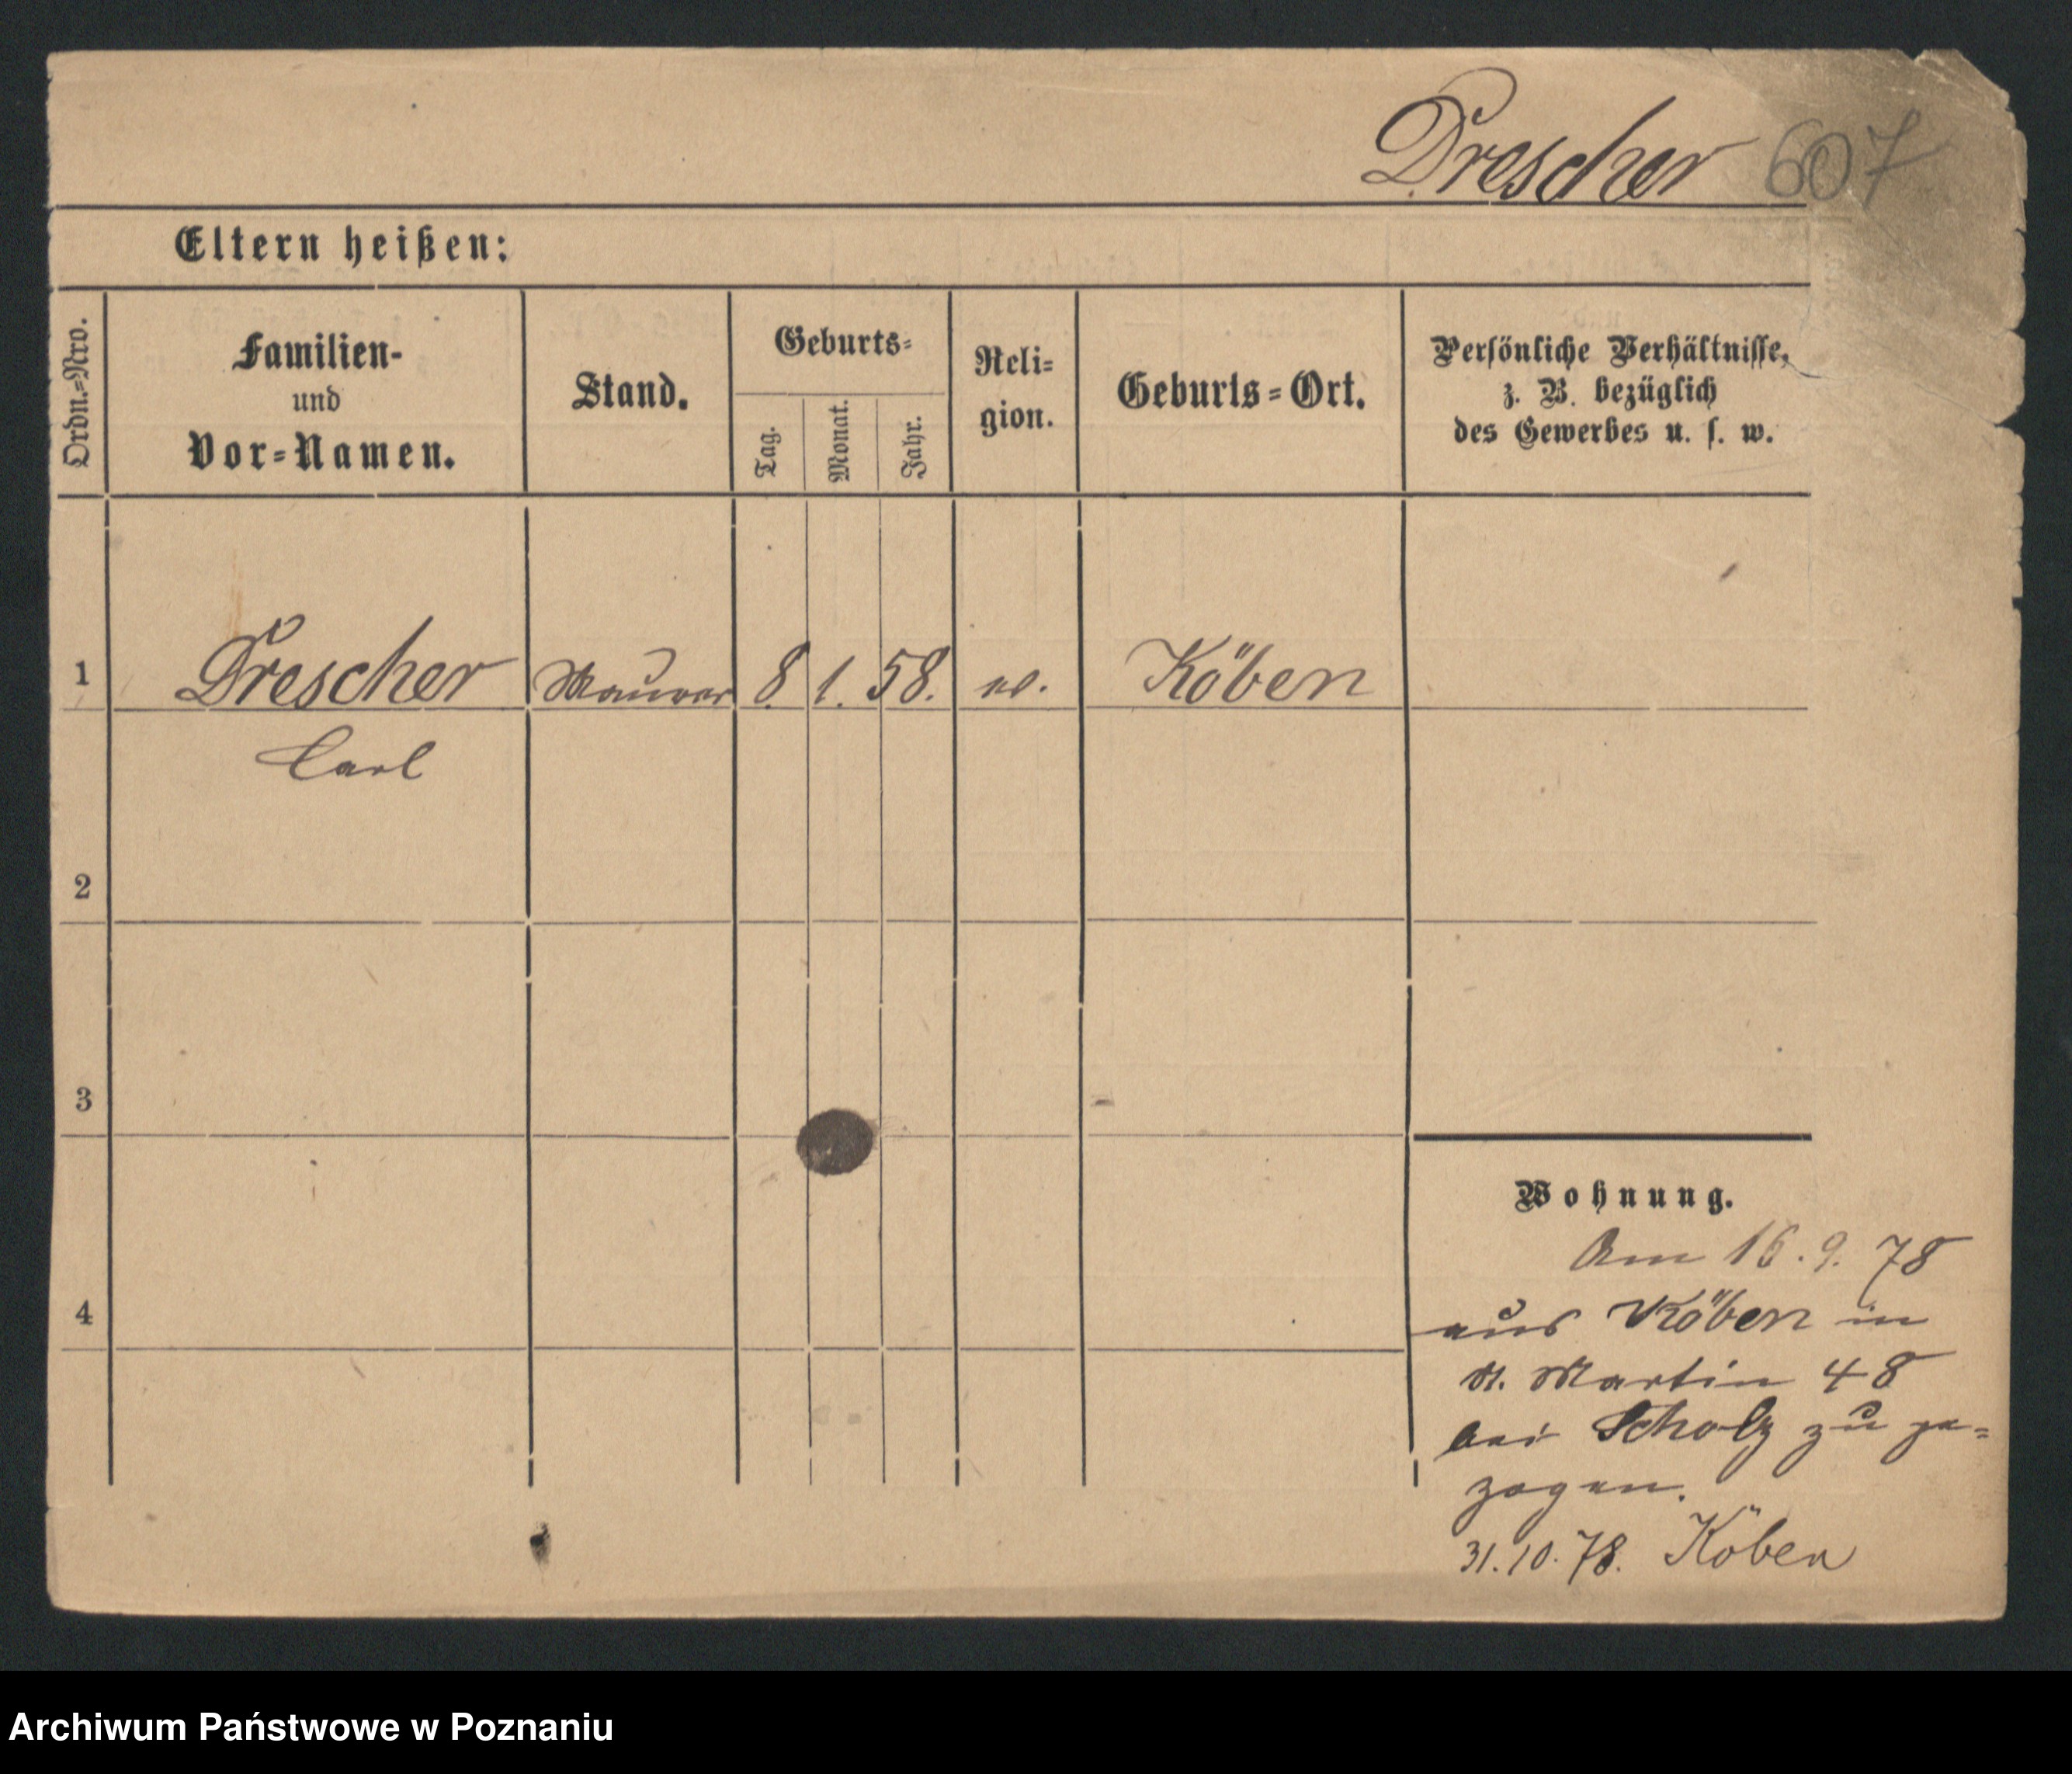 Drescher 607
Eltern heißen:
Ordn.-Nro.
Familien-
und
Vor-Namen.
Stand.
Geburts-
Tag.
Monat.
Jahr.
Reli-
gion.
Geburts-Ort.
Persönliche Verhältnisse,
z. B. bezüglich
des Gewerbes u. s. w.
1 Drescher Maurer 8. 1. 58. ev. Köben
Carl
2
3
4
Wohnung.
Am 16.9.78
aus Köben in
St. Martin 48
bei Scholz zu ge-
zogen.
31.10.78. Köben
Archiwum Państwowe w Poznaniu